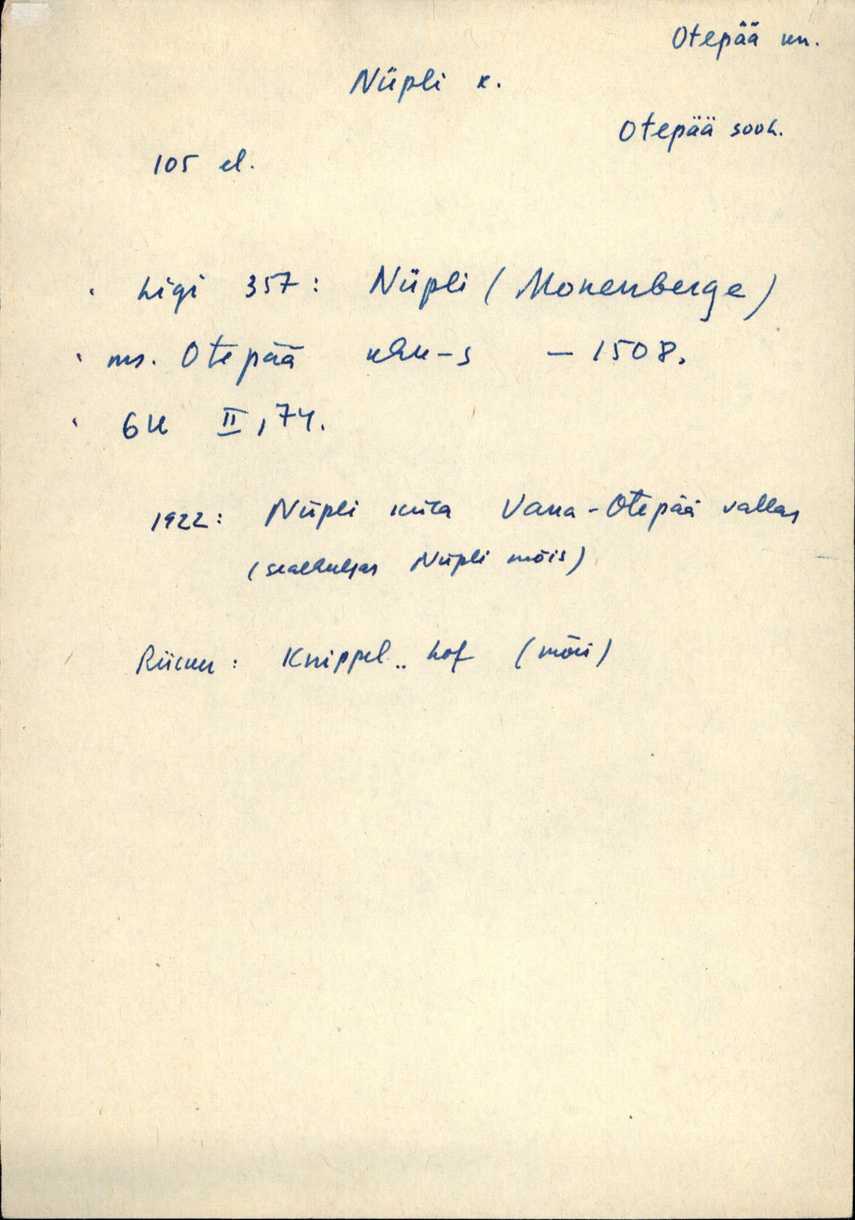 Otepää kn.
Nüpli k.
Otepää sovh.
105 el.
Ligi 357: Nüpli (Monenberge)
ms. Otepää khk-s – 1508.
GU II, 74.
1922: Nüpli küla Vana-Otepää vallas
(sealhulgas Nüpli mõis)
Rücker: Knüppel.. hof (mõis)